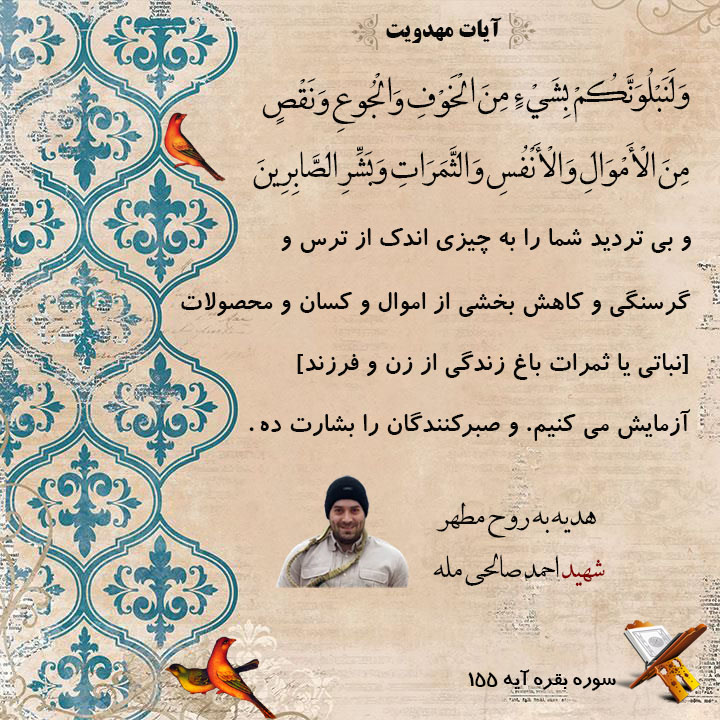 آیات مهدویت
وَلَنَبْلُوَنَّكُمْ بِشَيْءٍ مِنَ الْخَوْفِ وَالْجُوعِ وَنَقْصٍ
مِنَ الْأَمْوَالِ وَالْأَنْفُسِ وَالثَّمَرَاتِ وَبَشِّرِ الصَّابِرِينَ
و بی تردید شما را به چیزی اندک از ترس و
گرسنگی و کاهش بخشی از اموال و کسان و محصولات
[نباتی یا ثمرات باغ زندگی از زن و فرزند]
آزمایش می کنیم. و صبرکنندگان را بشارت ده .
هدیه به روح مطهر
شهید احمد صالحی مله
سوره بقره آیه ۱۵۵